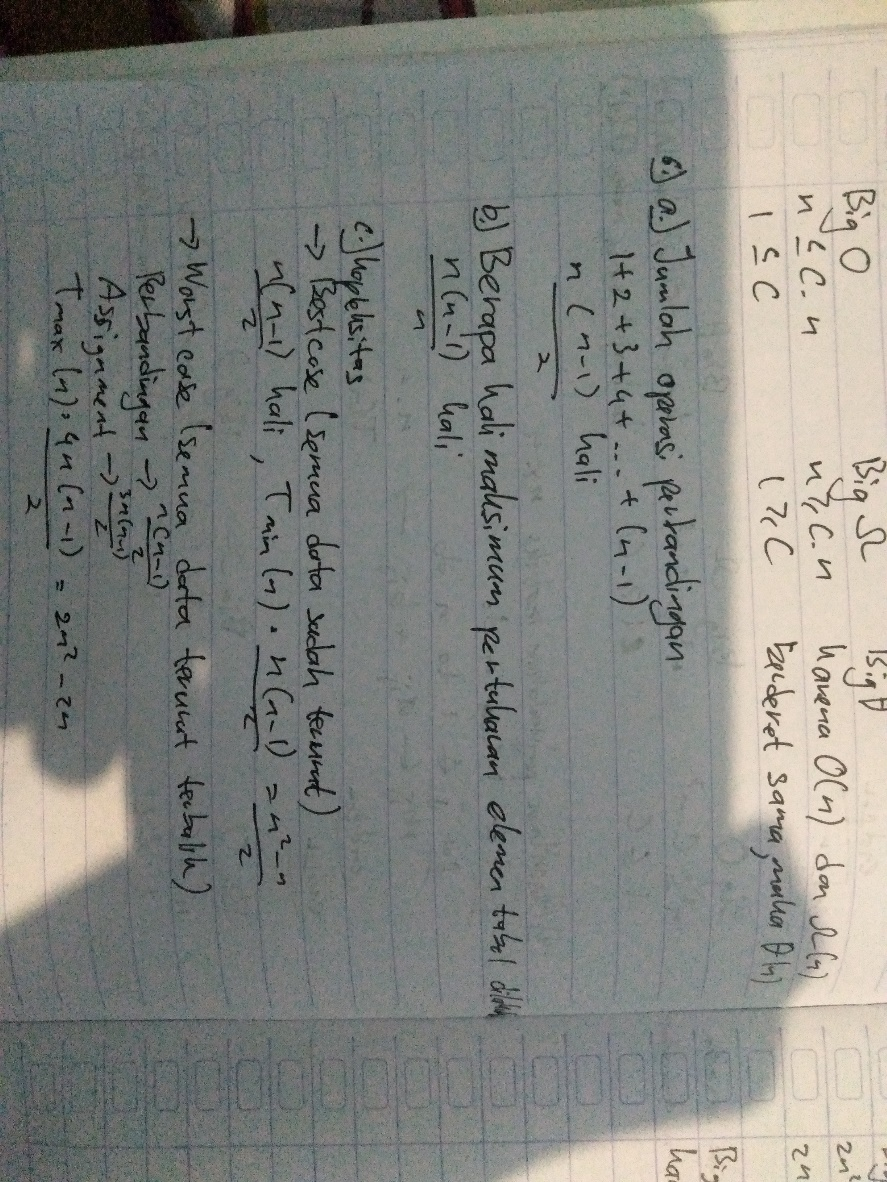 Big O Big Ω Big θ
n ≤ C.n n ≥ C.n karena O(n) dan Ω(n)
1 ≤ C 1 ≥ C berderet sama, maka θ(n)
6.) a.) Jumlah operasi perbandingan
1+2+3+4+ .... + (n-1)
n (n-1) hali
2
b.) Berapa kali maksimum pertukaran elemen tabel
n(n-1) hali
n
c.) Kopleksitas
→ Bestcase (semua data sudah terurut)
n(n-1) hali, Tmin (n) = n(n-1) = n² - n
2 2 2
→ Worst case (semua data terurut terbalik)
Perbandingan → n(n-1)
2
Assignment → 3n(n-1)
2
Tmax (n) = 4n (n-1) = 2n² - 2n
2
2n²
2n
Big